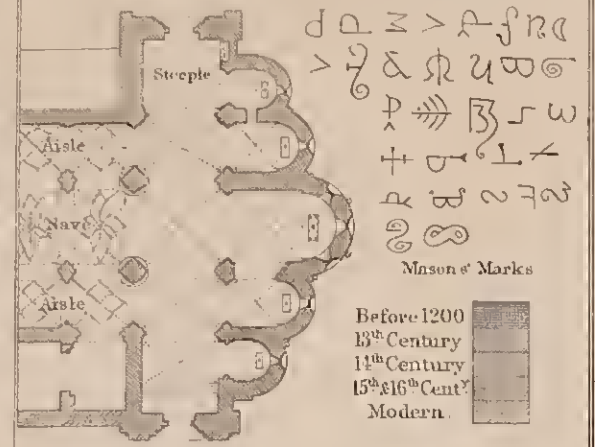 Steeple
Aisle
Nave
Aisle
Masons' Marks
Before 1200
13th Century
14th Century
15th & 16th Centy
Modern.